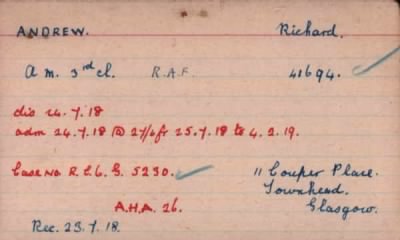 ANDREW. Richard.
A m. 3rd cl. R.A.F. 41694.
dis 24.7.18
adm 24.7.18 @ 27/6 fr 25.7.18 to 4.2.19.
Case No R.E.C. G. 5230. 11 Couper Place.
Townhead.
A.H.A. 26. Glasgow.
Rec. 23.7.18.